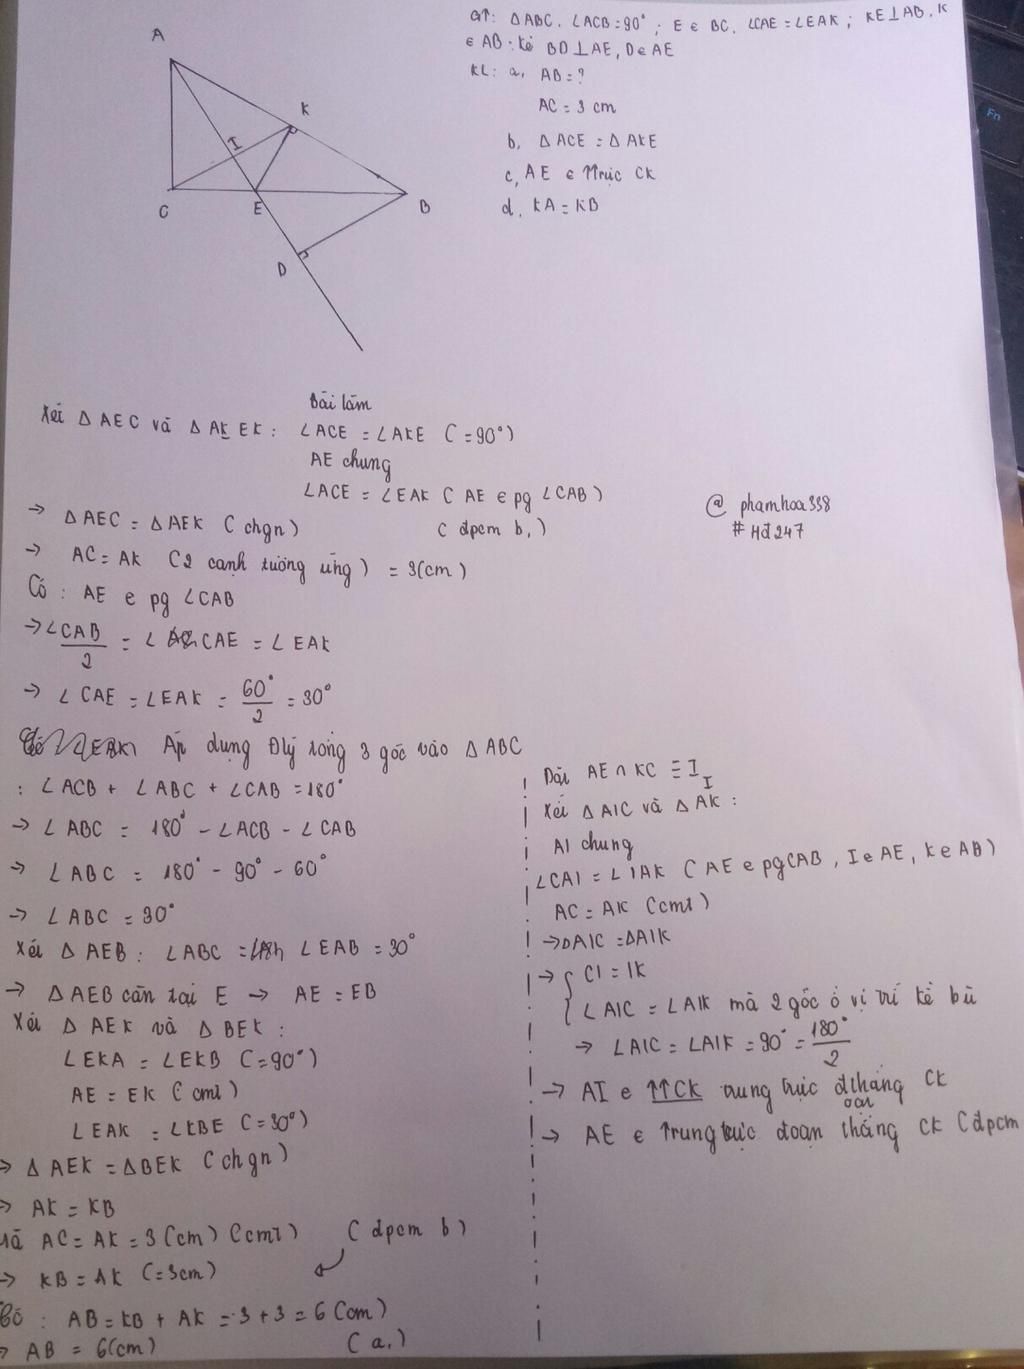 GT: ΔABC. ∠ACB = 90°; E ∈ BC. ∠CAE = ∠EAK; KE⊥AB, K
∈ AB. kẻ BD⊥AE, D∈AE
KL: a, AB = ?
AC = 3 cm
b, ΔACE = ΔAKE
c, AE ∈ Ttrực CK
d, KA = KB
A
K
I
C
E
B
D
Fn
Bài làm
Xét ΔAEC và ΔAK EK: ∠ACE = ∠AKE (=90°)
AE chung
∠ACE = ∠EAK (AE ∈ pg ∠CAB)
→ ΔAEC = ΔAEK (chgn) (đpcm b,)
@ phamhoa338
# Hđ247
→ AC = AK (2 cạnh tương ứng) = 3(cm)
Có: AE ∈ pg ∠CAB
→ ∠CAB/2 = ∠CAE = ∠EAK
→ ∠CAE = ∠EAK = 60°/2 = 30°
Áp dụng Đlý tổng 3 góc vào ΔABC
: ∠ACB + ∠ABC + ∠CAB = 180°
→ ∠ABC = 180° - ∠ACB - ∠CAB
→ ∠ABC = 180° - 90° - 60°
→ ∠ABC = 30°
Xét ΔAEB: ∠ABC = ∠EAB = 30°
→ ΔAEB cân tại E → AE = EB
Xét ΔAEK và ΔBEK:
∠EKA = ∠EKB (=90°)
AE = EK (cmt)
∠EAK = ∠KBE (=30°)
→ ΔAEK = ΔBEK (chgn)
→ AK = KB
mà AC = AK = 3(cm) (cmt) (đpcm b)
→ KB = AK (=3cm)
Có: AB = KB + AK = 3+3 = 6(cm)
→ AB = 6(cm) (a,)
Đặt AE ∩ KC ≡ I
Xét ΔAIC và ΔAIK:
AI chung
∠CAI = ∠IAK (AE ∈ pgCAB, I∈AE, K∈AB)
AC = AK (cmt)
→ ΔAIC = ΔAIK
→ { CI = IK
∠AIC = ∠AIK mà 2 góc ở vị trí kề bù
→ ∠AIC = ∠AIK = 90° = 180°/2
→ AI ∈ TTCK trung trực đthẳng CK
→ AE ∈ Trung trực đoạn thẳng CK (đpcm